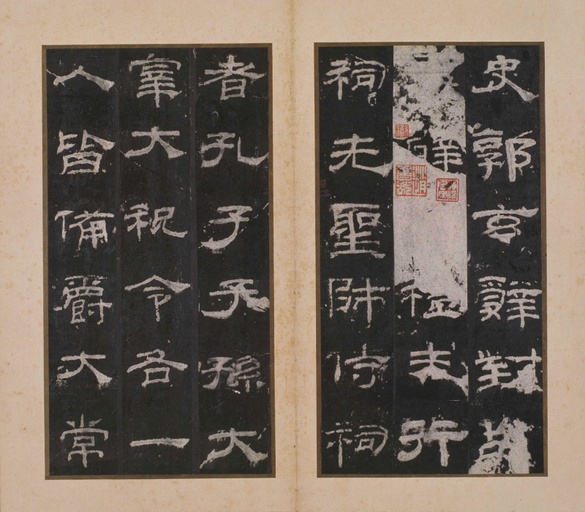 史郭玄辭對
未行
祠先聖師侍祠
者孔子子孫大
宰大祝令各一
人皆備爵大常